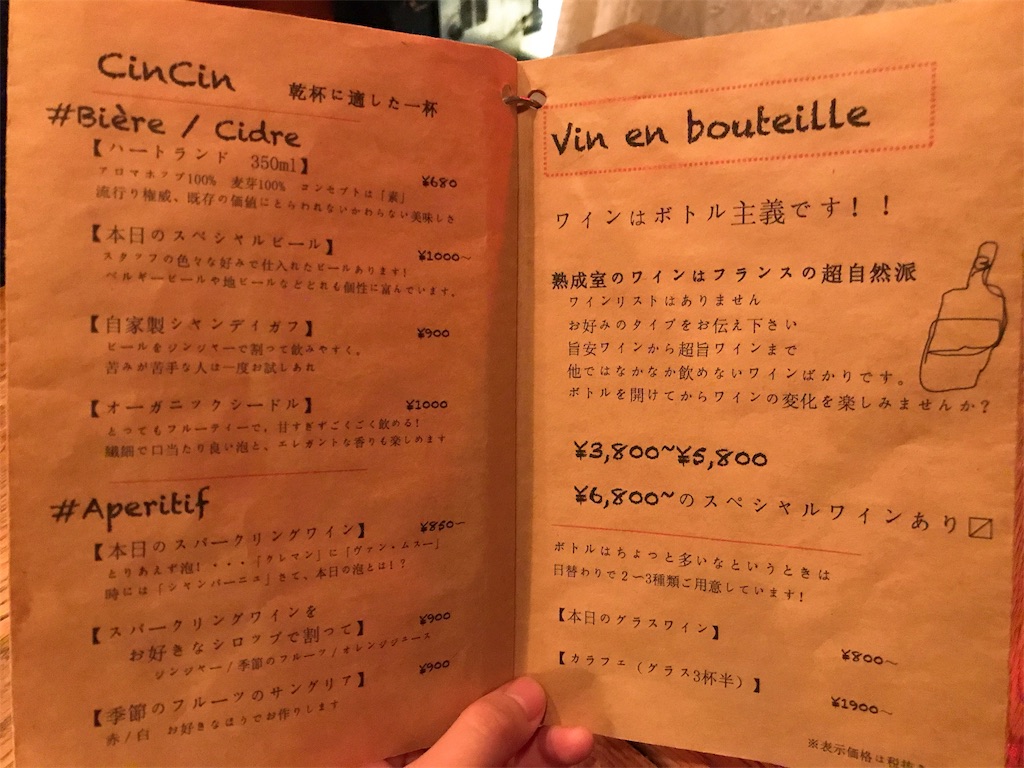 CinCin 乾杯に適した一杯
#Bière / Cidre
【ハートランド 350ml】 ¥680
アロマホップ100% 麦芽100% コンセプトは「素」
流行り権威、既存の価値にとらわれないかわらない美味しさ
【本日のスペシャルビール】 ¥1000~
スタッフの色々な好みで仕入れたビールあります!
ベルギービールや地ビールなどどれも個性に富んでいます。
【自家製シャンディガフ】 ¥900
ビールをジンジャーで割って飲みやすく。
苦みが苦手な人は一度お試しあれ
【オーガニックシードル】 ¥1000
とってもフルーティーで,甘すぎずごくごく飲める!
繊細で口当たり良い泡と、エレガントな香りも楽しめます
#Aperitif
【本日のスパークリングワイン】 ¥850~
とりあえず泡!・・・「クレマン」に「ヴァン・ムスー」
時には「シャンパーニュ」さて、本日の泡とは!?
【スパークリングワインを
お好きなシロップで割って】 ¥900
ジンジャー/季節のフルーツ/オレンジジュース
【季節のフルーツのサングリア】 ¥900
赤/白 お好きなほうでお作りします
Vin en bouteille
ワインはボトル主義です!!
熟成室のワインはフランスの超自然派
ワインリストはありません
お好みのタイプをお伝え下さい
旨安ワインから超旨ワインまで
他ではなかなか飲めないワインばかりです。
ボトルを開けてからワインの変化を楽しみませんか?
¥3,800~¥5,800
¥6,800~のスペシャルワインあり
ボトルはちょっと多いなというときは
日替わりで2~3種類ご用意しています!
【本日のグラスワイン】
¥800~
【カラフェ(グラス3杯半)】
¥1900~
※表示価格は税抜き